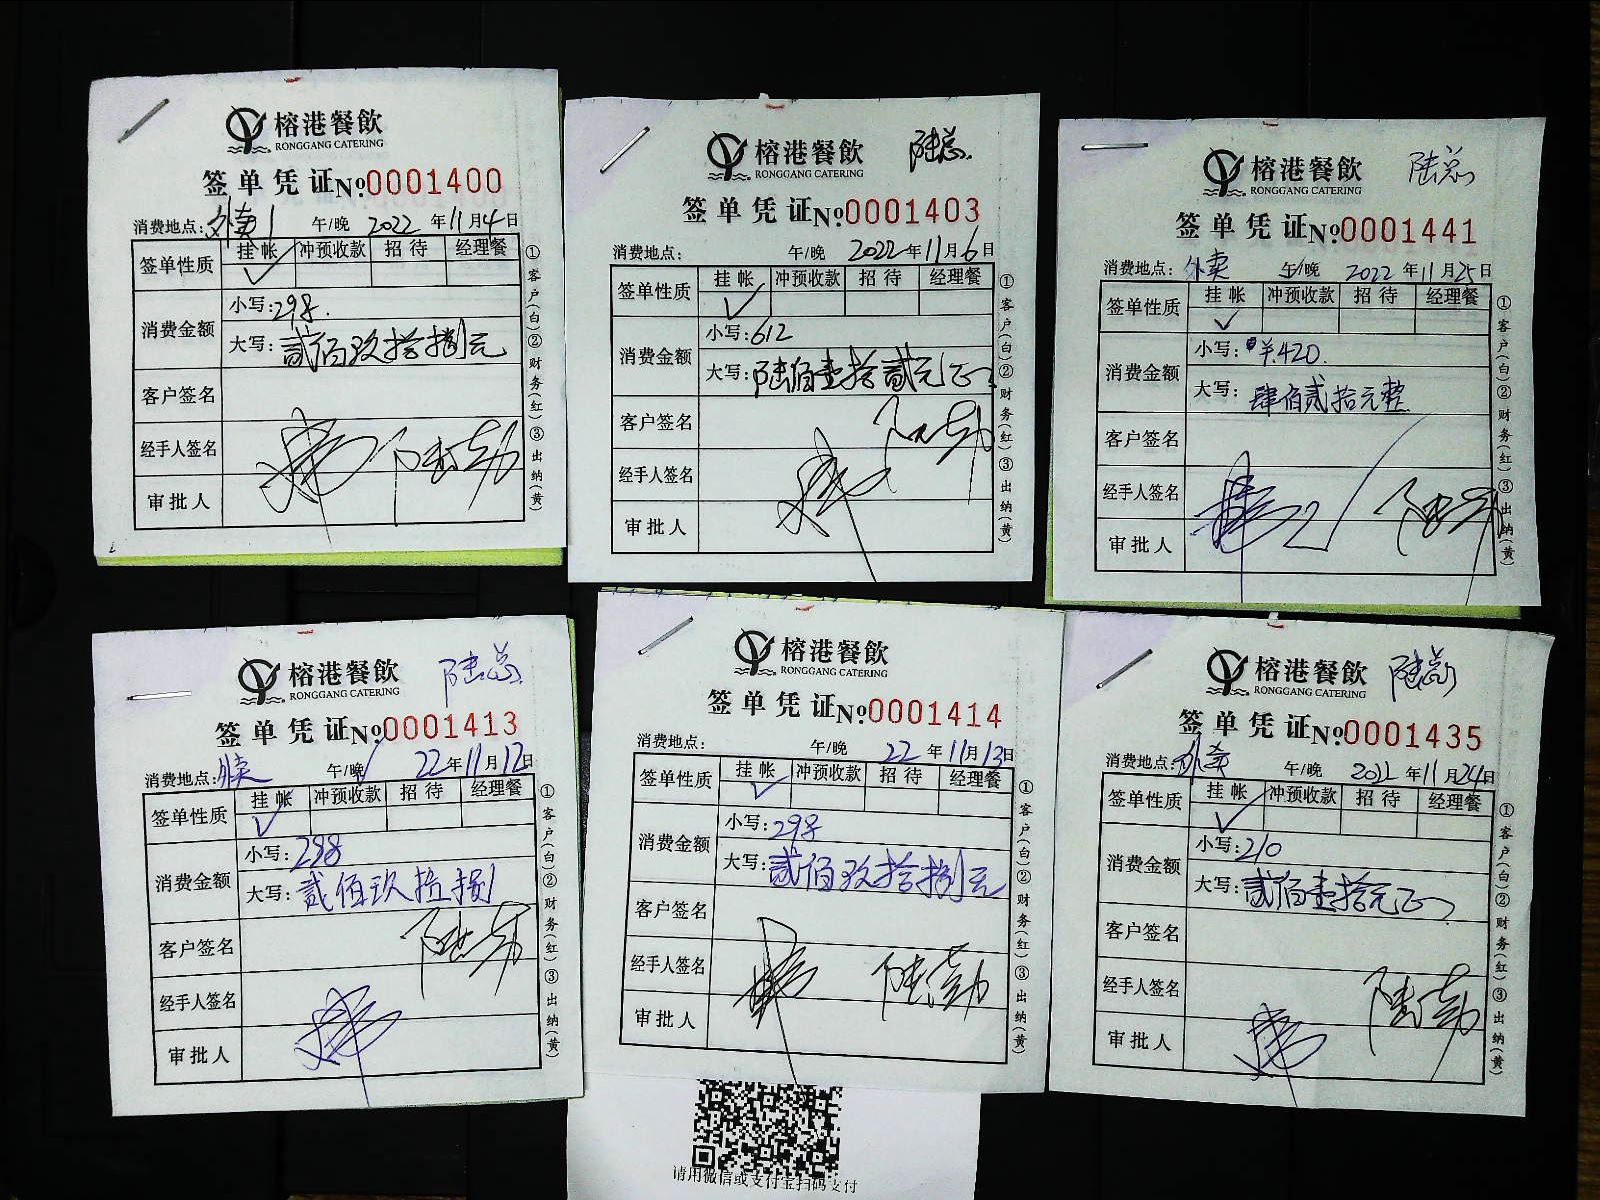 榕港餐飲
RONGGANG CATERING
签单凭证 №0001400
消费地点：外卖 午/晚 2022 年 11 月 4 日
签单性质 挂帐 冲预收款 招待 经理餐
✓
消费金额
小写：298.
大写：贰佰玖拾捌元
客户签名
经手人签名 陆劲
审批人
①客户（白）②财务（红）③出纳（黄）
榕港餐飲 陆总
RONGGANG CATERING
签单凭证 №0001403
消费地点： 午/晚 2022 年 11 月 6 日
签单性质 挂帐 冲预收款 招待 经理餐
✓
消费金额
小写：612
大写：陆佰壹拾贰元正
客户签名
经手人签名
审批人
①客户（白）②财务（红）③出纳（黄）
榕港餐飲 陆总
RONGGANG CATERING
签单凭证 №0001441
消费地点：外卖 午/晚 2022 年 11 月 25 日
签单性质 挂帐 冲预收款 招待 经理餐
✓
消费金额
小写：¥420.
大写：肆佰贰拾元整
客户签名
经手人签名
审批人
①客户（白）②财务（红）③出纳（黄）
榕港餐飲 陆总
RONGGANG CATERING
签单凭证 №0001413
消费地点：外卖 午/晚 22 年 11 月 12 日
签单性质 挂帐 冲预收款 招待 经理餐
✓
消费金额
小写：298
大写：贰佰玖拾捌
客户签名 陆劲
经手人签名
审批人
①客户（白）②财务（红）③出纳（黄）
榕港餐飲
RONGGANG CATERING
签单凭证 №0001414
消费地点： 午/晚 22 年 11 月 13 日
签单性质 挂帐 冲预收款 招待 经理餐
✓
消费金额
小写：298
大写：贰佰玖拾捌元
客户签名
经手人签名 陆劲
审批人
①客户（白）②财务（红）③出纳（黄）
榕港餐飲 陆总
RONGGANG CATERING
签单凭证 №0001435
消费地点：外卖 午/晚 2022 年 11 月 24 日
签单性质 挂帐 冲预收款 招待 经理餐
✓
消费金额
小写：210
大写：贰佰壹拾元正
客户签名
经手人签名 陆劲
审批人
①客户（白）②财务（红）③出纳（黄）
请用微信或支付宝扫码支付